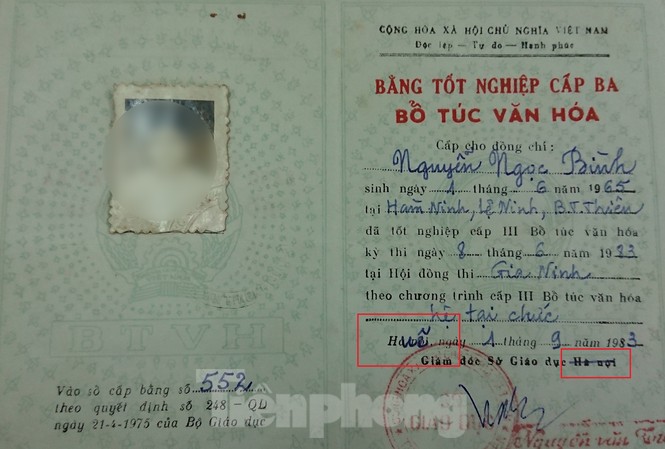 CỘNG HÒA XÃ HỘI CHỦ NGHĨA VIỆT NAM
Độc lập — Tự do — Hạnh phúc
BẰNG TỐT NGHIỆP CẤP BA
BỔ TÚC VĂN HÓA
Cấp cho đồng chí:
Nguyễn Ngọc Bình
sinh ngày 1 tháng 6 năm 1965
tại Hàm Ninh, Lệ Ninh, B.T.Thiên
đã tốt nghiệp cấp III Bổ túc văn hóa
kỳ thi ngày 8 tháng 6 năm 1983
tại Hội đồng thi Gia Ninh
theo chương trình cấp III Bổ túc văn hóa
hệ tại chức
ngày 1 tháng 9 năm 1983
Giám đốc Sở Giáo dục Hà nội
Nguyễn văn
BTVH
Vào sổ cấp bằng số 552
theo quyết định số 248 — QĐ
ngày 21-4-1975 của Bộ Giáo dục
Tiền phong